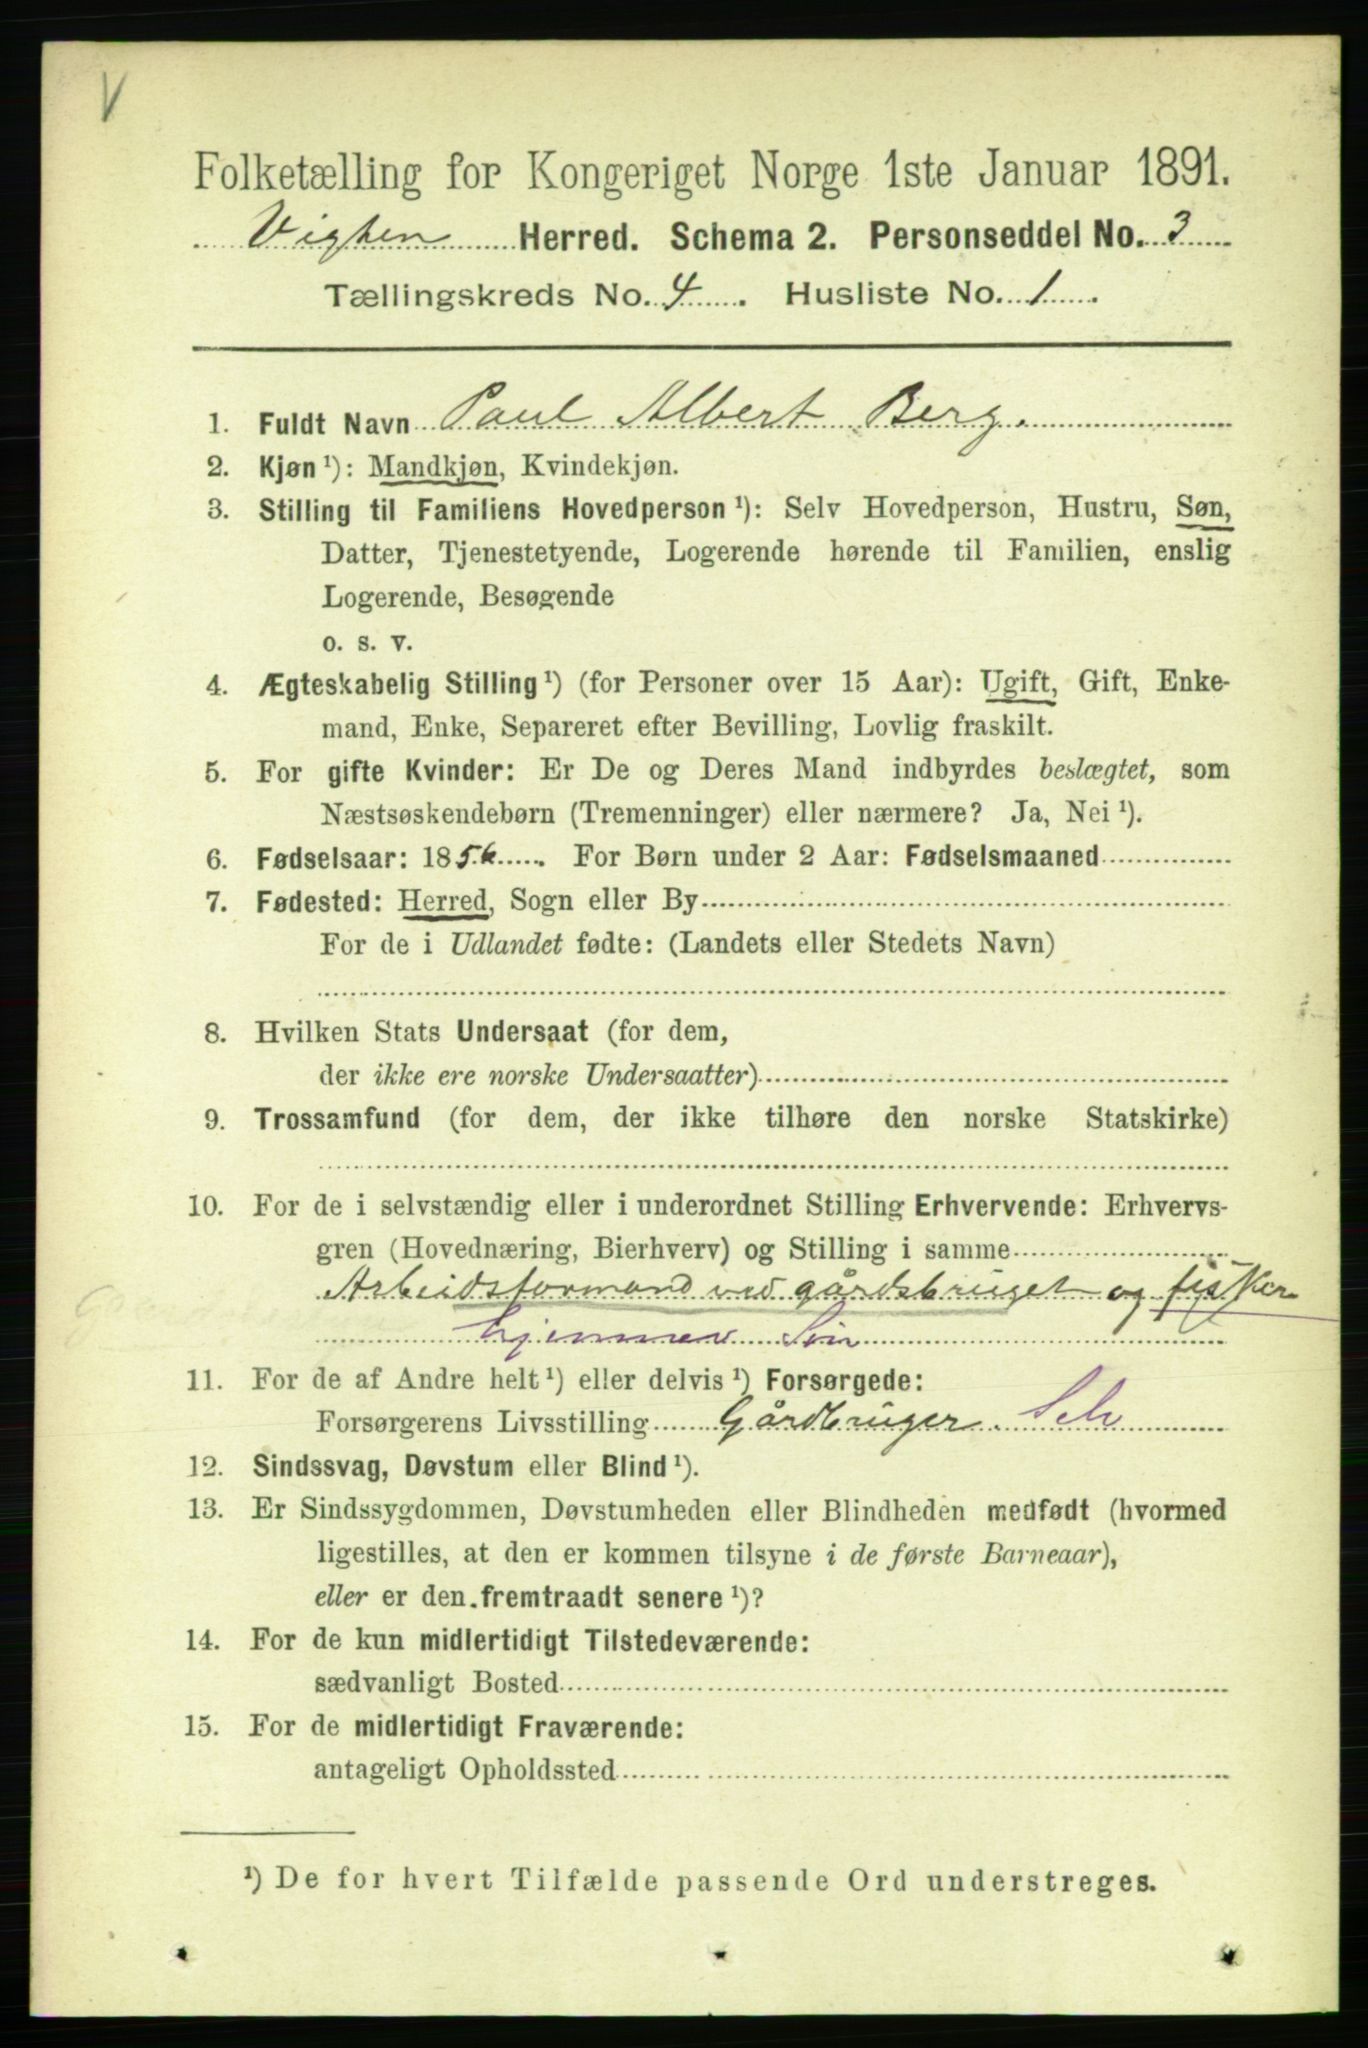 V
Folketælling for Kongeriget Norge 1ste Januar 1891.
Vigten Herred. Schema 2. Personseddel No. 3
Tællingskreds No. 4. Husliste No. 1.
1. Fuldt Navn Paul Albert Berg.
2. Kjøn ¹): Mandkjøn, Kvindekjøn.
3. Stilling til Familiens Hovedperson ¹): Selv Hovedperson, Hustru, Søn,
Datter, Tjenestetyende, Logerende hørende til Familien, enslig
Logerende, Besøgende
o. s. v.
4. Ægteskabelig Stilling ¹) (for Personer over 15 Aar): Ugift, Gift, Enke-
mand, Enke, Separeret efter Bevilling, Lovlig fraskilt.
5. For gifte Kvinder: Er De og Deres Mand indbyrdes beslægtet, som
Næstsøskendebørn (Tremenninger) eller nærmere? Ja, Nei ¹).
6. Fødselsaar: 1856. For Børn under 2 Aar: Fødselsmaaned
7. Fødested: Herred, Sogn eller By
For de i Udlandet fødte: (Landets eller Stedets Navn)
8. Hvilken Stats Undersaat (for dem,
der ikke ere norske Undersaatter)
9. Trossamfund (for dem, der ikke tilhøre den norske Statskirke)
10. For de i selvstændig eller i underordnet Stilling Erhvervende: Erhvervs-
gren (Hovednæring, Bierhverv) og Stilling i samme
Arbeidsformand ved gårdsbruget og fisker
hjemmev Søn
11. For de af Andre helt ¹) eller delvis ¹) Forsørgede:
Forsørgerens Livsstilling Gårdbruger. Selv
12. Sindssvag, Døvstum eller Blind ¹).
13. Er Sindssygdommen, Døvstumheden eller Blindheden medfødt (hvormed
ligestilles, at den er kommen tilsyne i de første Barneaar),
eller er den fremtraadt senere ¹)?
14. For de kun midlertidigt Tilstedeværende:
sædvanligt Bosted
15. For de midlertidigt Fraværende:
antageligt Opholdssted
¹) De for hvert Tilfælde passende Ord understreges.